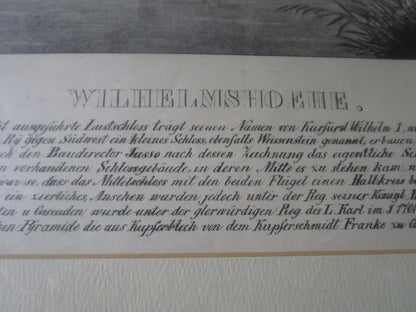 WILHELMSHOEHE.
ausgeführte Lustschloss trägt seinen Namen von Kurfürst Wilhelm I,
gegen Südwest ein kleines Schloss, ebenfalls Weissenstein genannt, erbauen,
den Baudirector Jusso nach dessen Zeichnung das eigentliche
vorhandenen Schlossgebäude, in deren Mitte es zu stehen kam,
so, dass das Mittelschloss mit den beiden Flügel einen Halbkreis
ein zierliches Ansehen wurden jedoch unter der Reg seiner Königl
u Cascaden wurde unter der glorwürdigen Reg des L. Karl im J 1701
Pyramide die aus Kupferblech von dem Kupferschmidt Franke zu